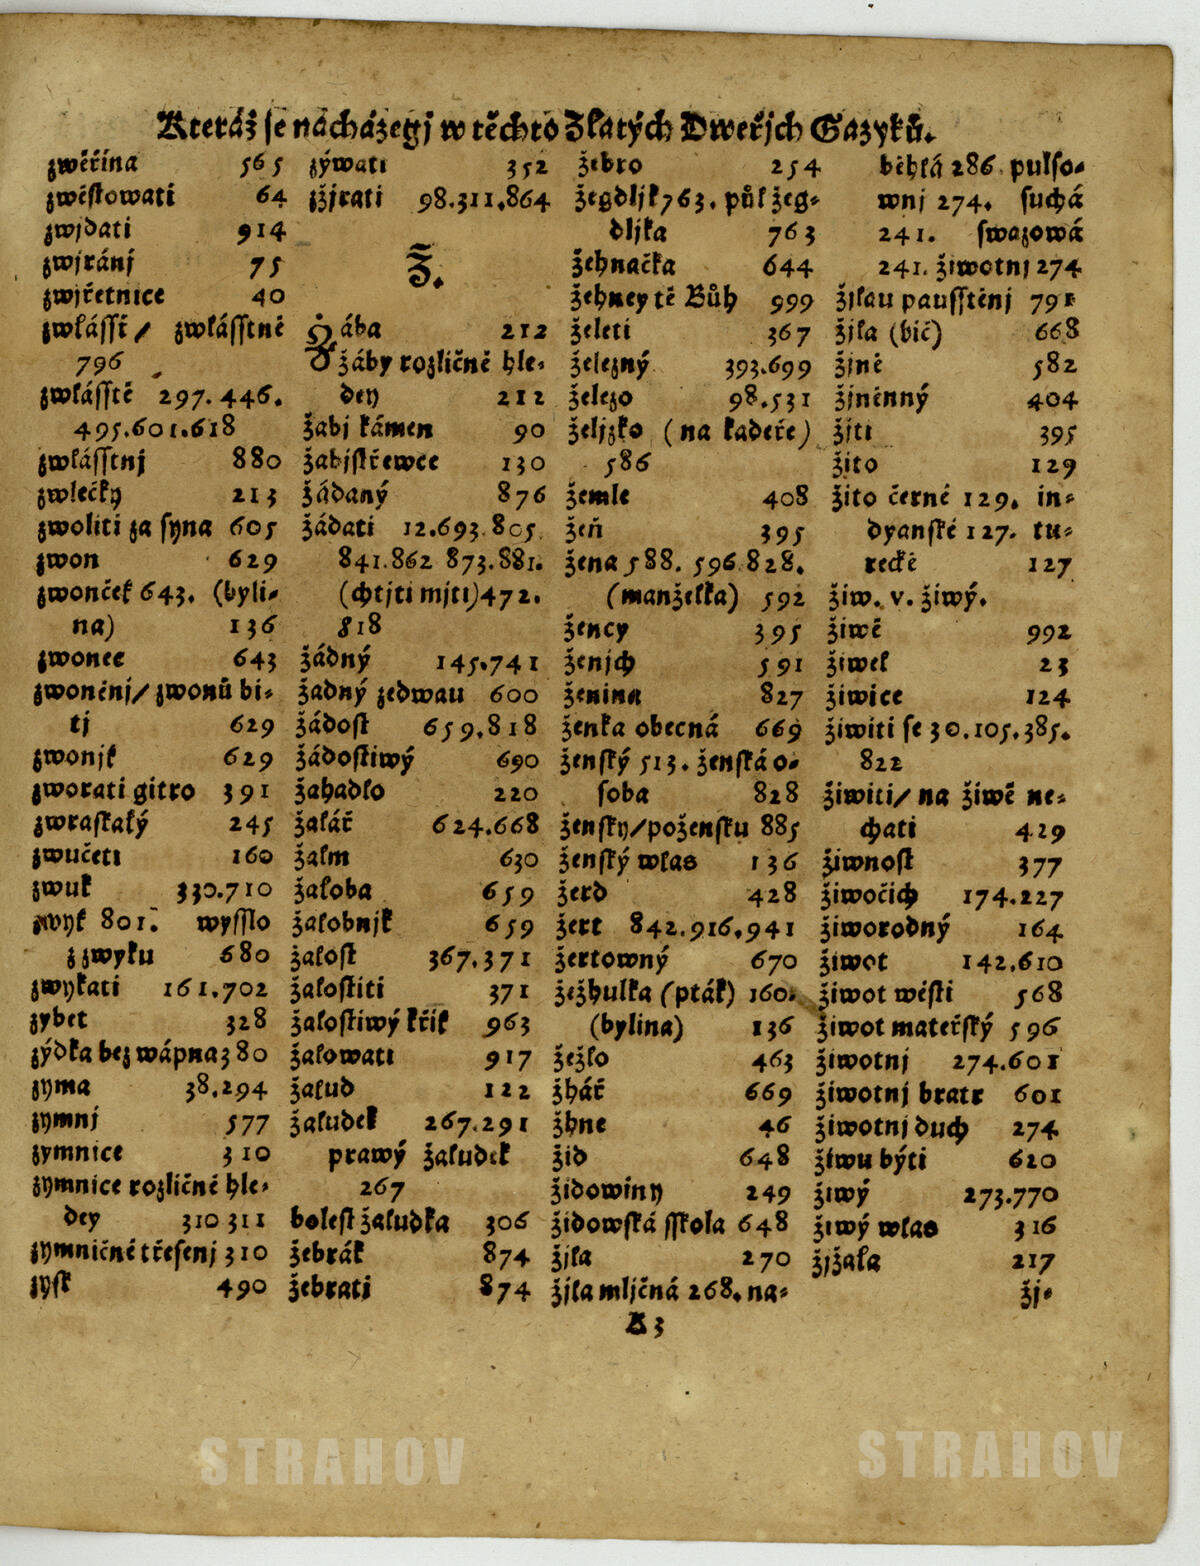 Kteráž se nacházegj w těchto Zlatých Dweřjch Gazyků.
zwěřina 565
zwěstowati 64
zwjdati 914
zwjránj 75
zwjřetnice 40
zwlásst/ zwlásstně
796
zwlásstě 297. 446.
495.601.618
zwlásstnj 880
zwlečky 213
zwoliti za syna 605
zwon 629
zwonček 643. (byli-
na) 136
zwonec 643
zwoněnj/ zwonů bi-
tj 629
zwonjk 629
zworati gitro 391
zwraskalý 245
zwučeti 160
zwuk 330.710
zwyk 801. wysslo
z zwyku 680
zwykati 161.702
zybet 328
zýdka bez wápna 380
zyma 38.294
zymnj 577
zymnice 310
zymnice rozličné hle-
dey 310 311
zymničné třesenj 310
zysk 490
zýwati 352
zžjrati 98.311.864
Ž.
Žába 212
žáby rozličné hle-
dey 212
žabj kámen 90
žabjstřewce 130
žádaný 876
žádati 12.693.805.
841.862 873.881.
(chtjti mjti) 472.
818
žádný 145.741
žadný zedwau 600
žádost 659.818
žádostiwý 690
žahadlo 220
žalář 624.668
žalm 630
žaloba 659
žalobnjk 659
žalost 367.371
žalostiti 371
žalostiwý křik 963
žalowati 917
žalud 122
žaludek 267.291
prawý žaludek
267
bolest žaludka 306
žebrák 874
žebrati 874
žebro 254
žegdljk 763. půl žeg-
dljka 763
žehnačka 644
žehney tě Bůh 999
želeti 367
železný 393.699
železo 98.531
željzko (na kadeře)
586
žemle 408
žeň 395
žena 588. 596.828.
(manželka) 592
žency 395
ženjch 591
ženina 827
ženka obecná 669
ženský 513. ženská o-
soba 828
žensky/poženskv 885
ženský wlas 136
žerd 428
žert 842.916.941
žertowný 670
žežhulka (pták) 160.
(bylina) 136
žežlo 463
žhář 669
žhne 46
žid 648
židowiny 249
židowská sskola 648
žjla 270
žjla mljčná 268. na-
běhlá 286. pulso-
wnj 274. suchá
241. swazowá
241. žiwotnj 274
žjlau pausstěnj 791
žjla (bič) 668
žjně 582
žjněnný 404
žjti 395
žito 129
žito černé 129. in-
dyanské 127. tu-
recké 127
žiw. v. žiwý.
žiwě 992
žiwel 23
žiwice 124
žiwiti se 30.105.385.
822
žiwiti/ na žiwě ne-
chati 429
žiwnost 377
žiwočich 174.227
žiworodný 164
žiwot 142.610
žiwot wésti 568
žiwot mateřský 596
žiwotnj 274.601
žiwotnj bratr 601
žiwotnj duch 274
žiwu býti 620
žiwý 273.770
žiwý wlas 316
žjžala 217
žj-
K 3
STRAHOV
STRAHOV